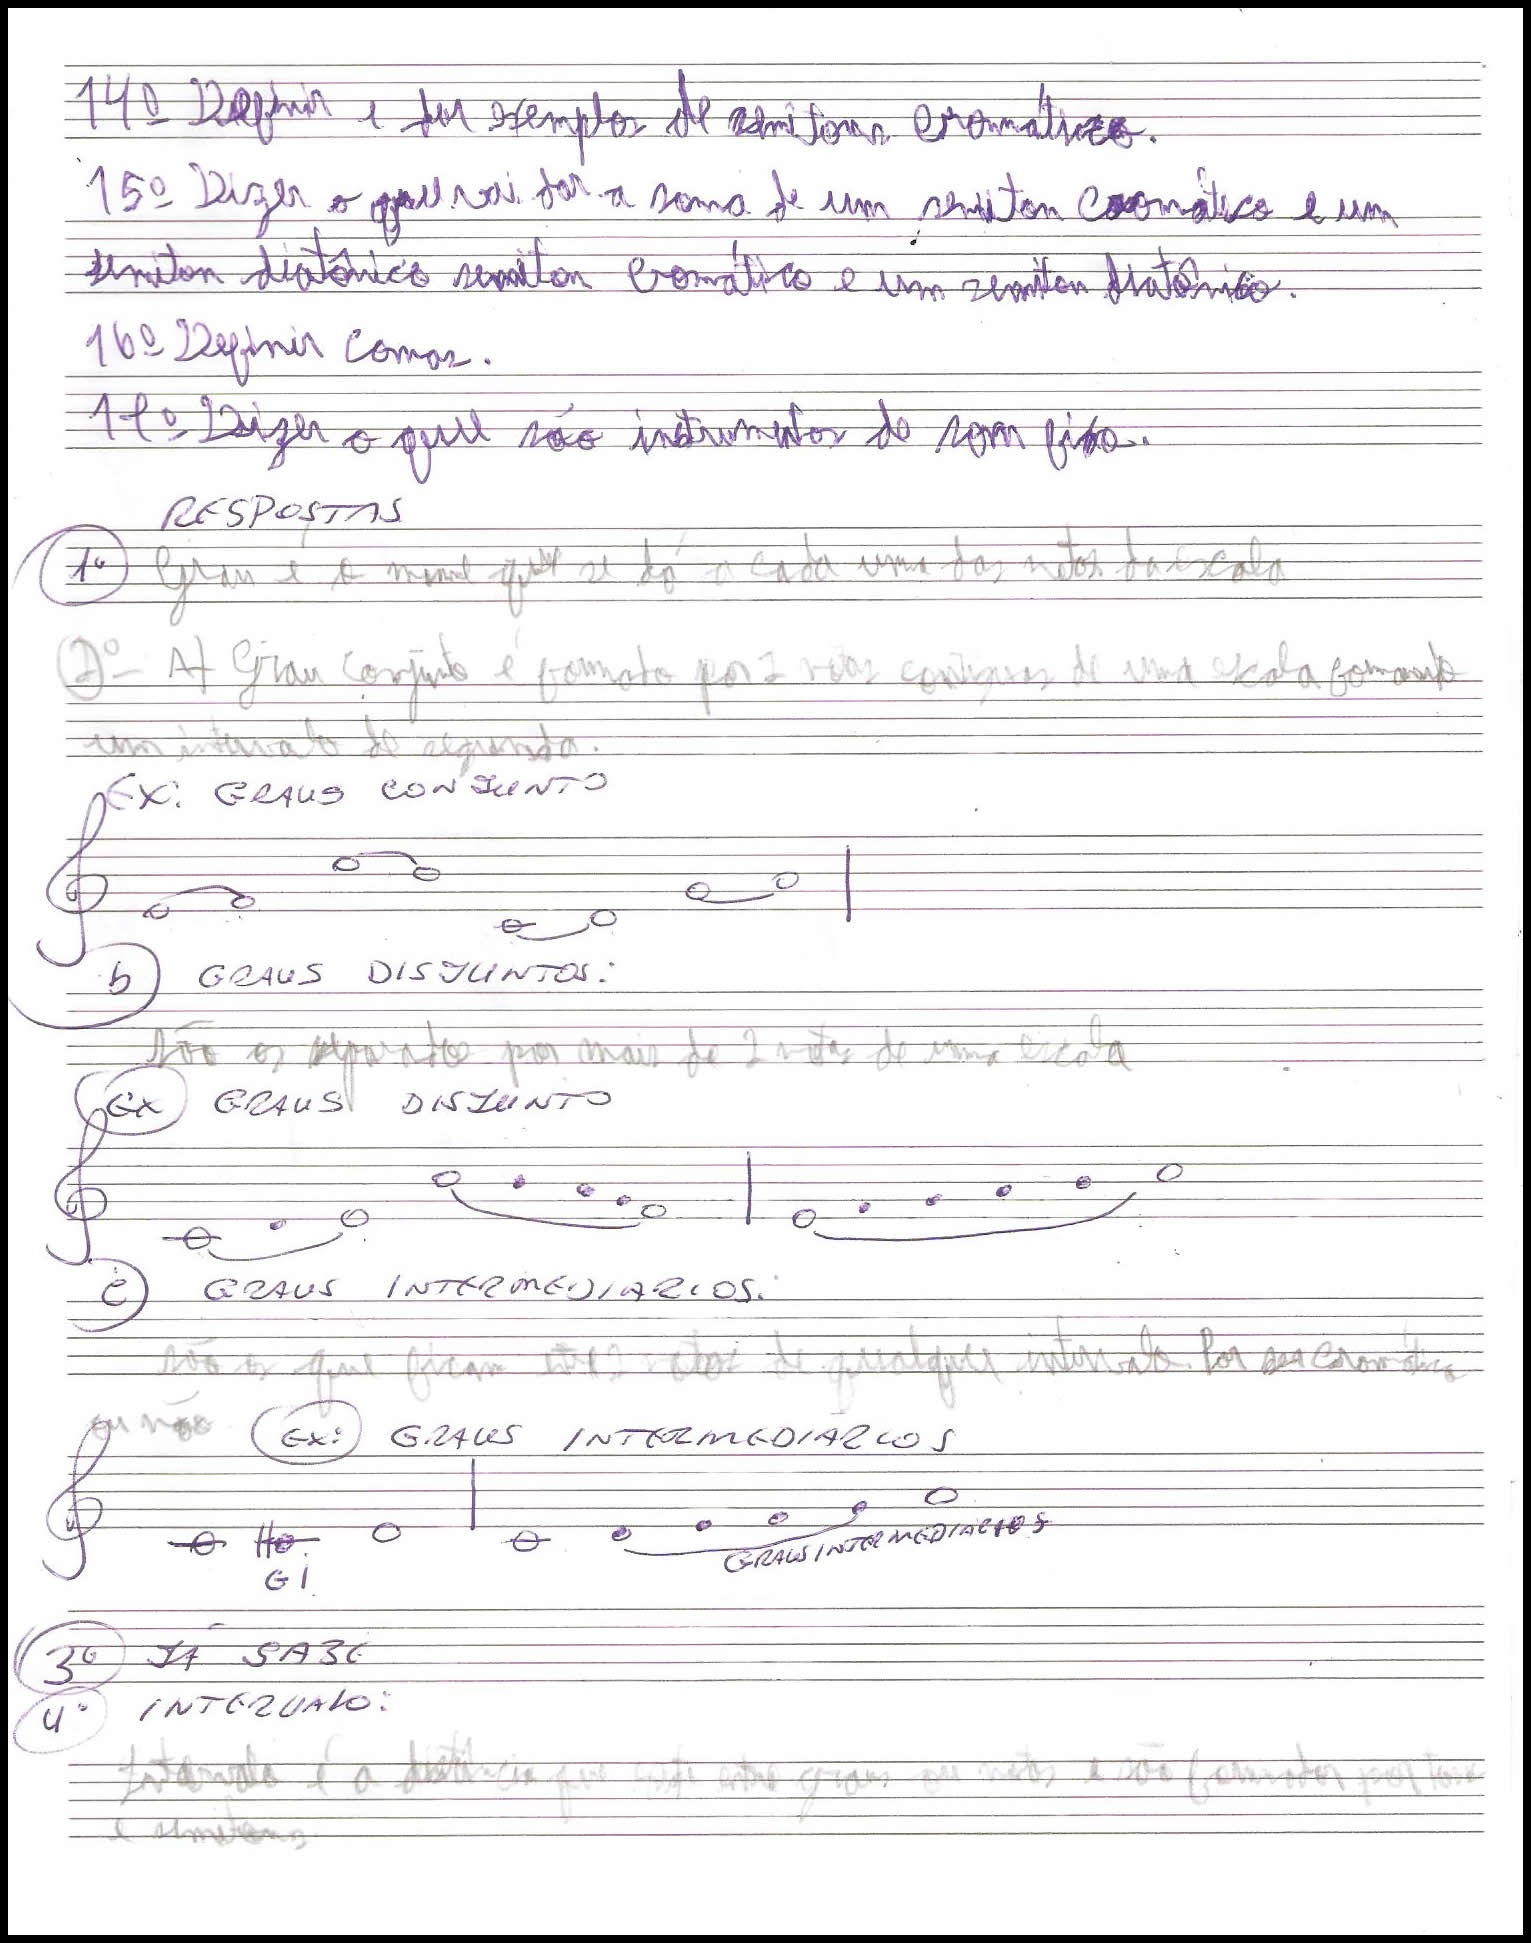 14º Definir e dar exemplos de semitons cromáticos.
15º Dizer o que vai dar a soma de um semiton cromático e um
semiton diatônico semiton cromático e um semiton diatônico.
16º Definir comas.
17º Dizer o que são instrumentos de som fixo.
RESPOSTAS
1º Grau é o nome que se dá a cada uma das notas da escala
2º- A) Grau conjunto é formato por 2 notas contiguas de uma escala formando
um intervalo de segunda.
EX: GRAUS CONJUNTO
b) GRAUS DISJUNTOS:
são os separados por mais de 2 notas de uma escala
EX GRAUS DISJUNTO
C) GRAUS INTERMEDIARIOS:
são os que ficam 2 notas de qualquer intervalo. Por ser cromático
ou não EX: GRAUS INTERMEDIARIOS
GI
GRAUS INTERMEDIARIOS
3º JÁ SABE
4º INTERVALO:
Intervalo é a distância que existe entre graus ou notas e são formados por tons
e semitons